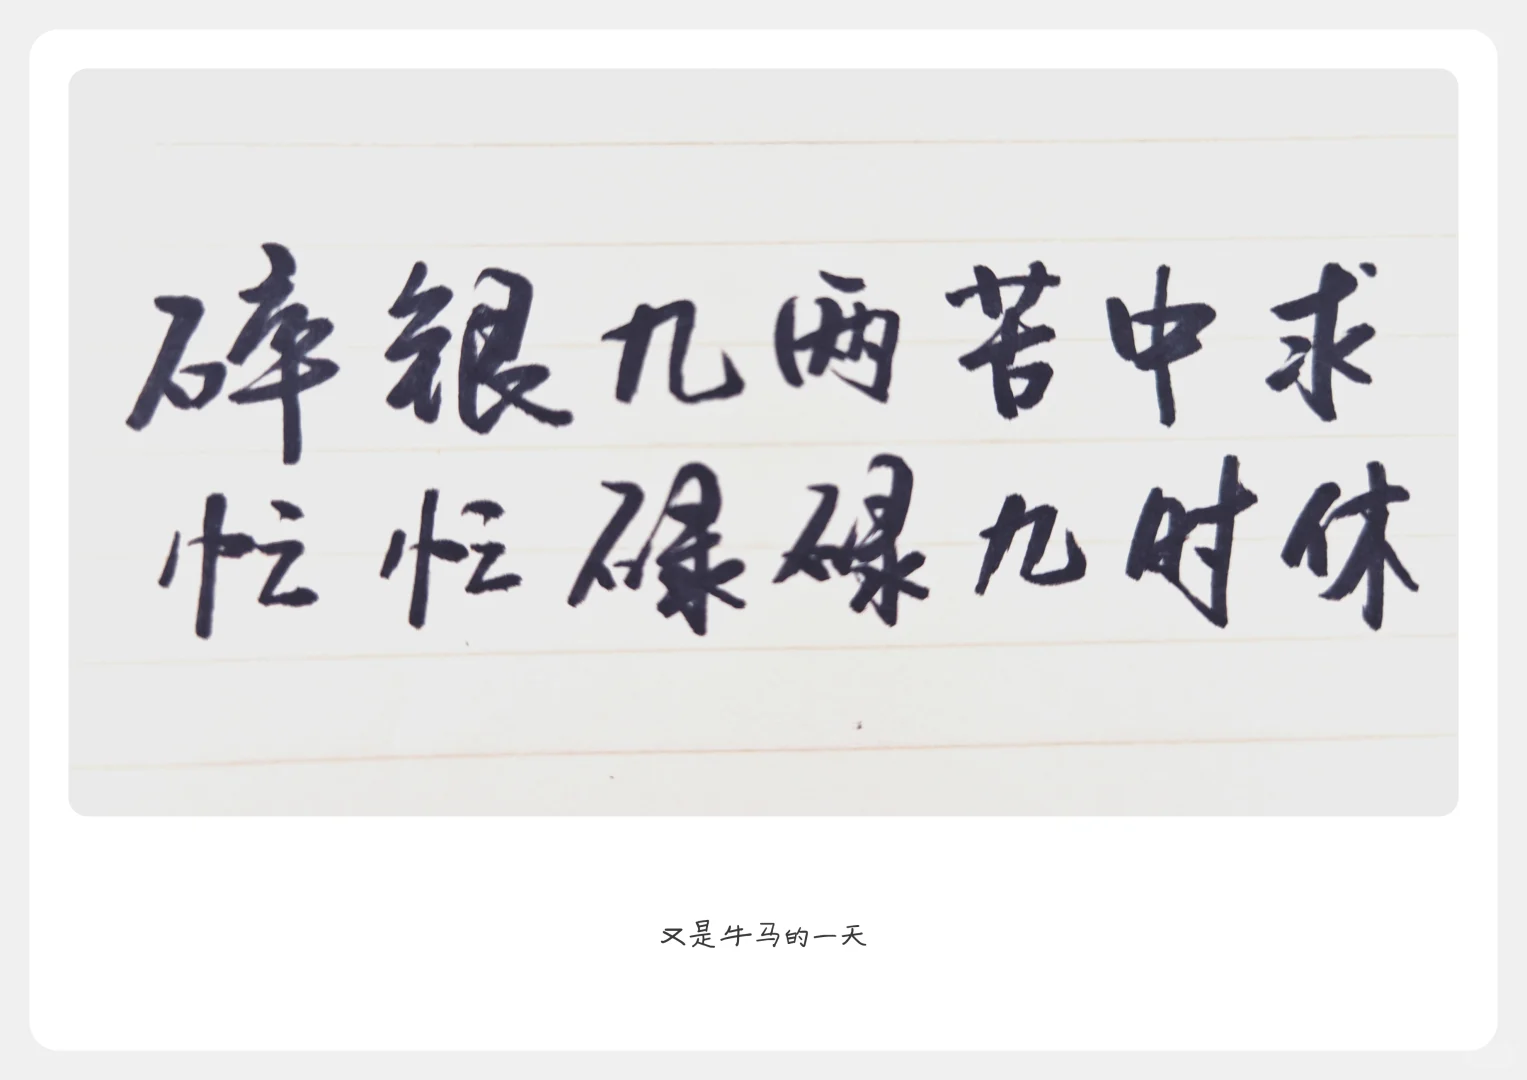 碎银九两苦中求
忙忙碌碌九时休
又是牛马的一天